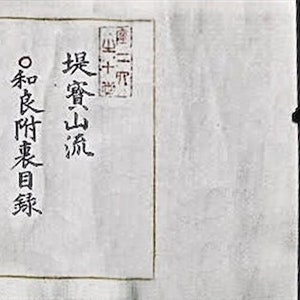 堤寶山流
○和良附裏目録